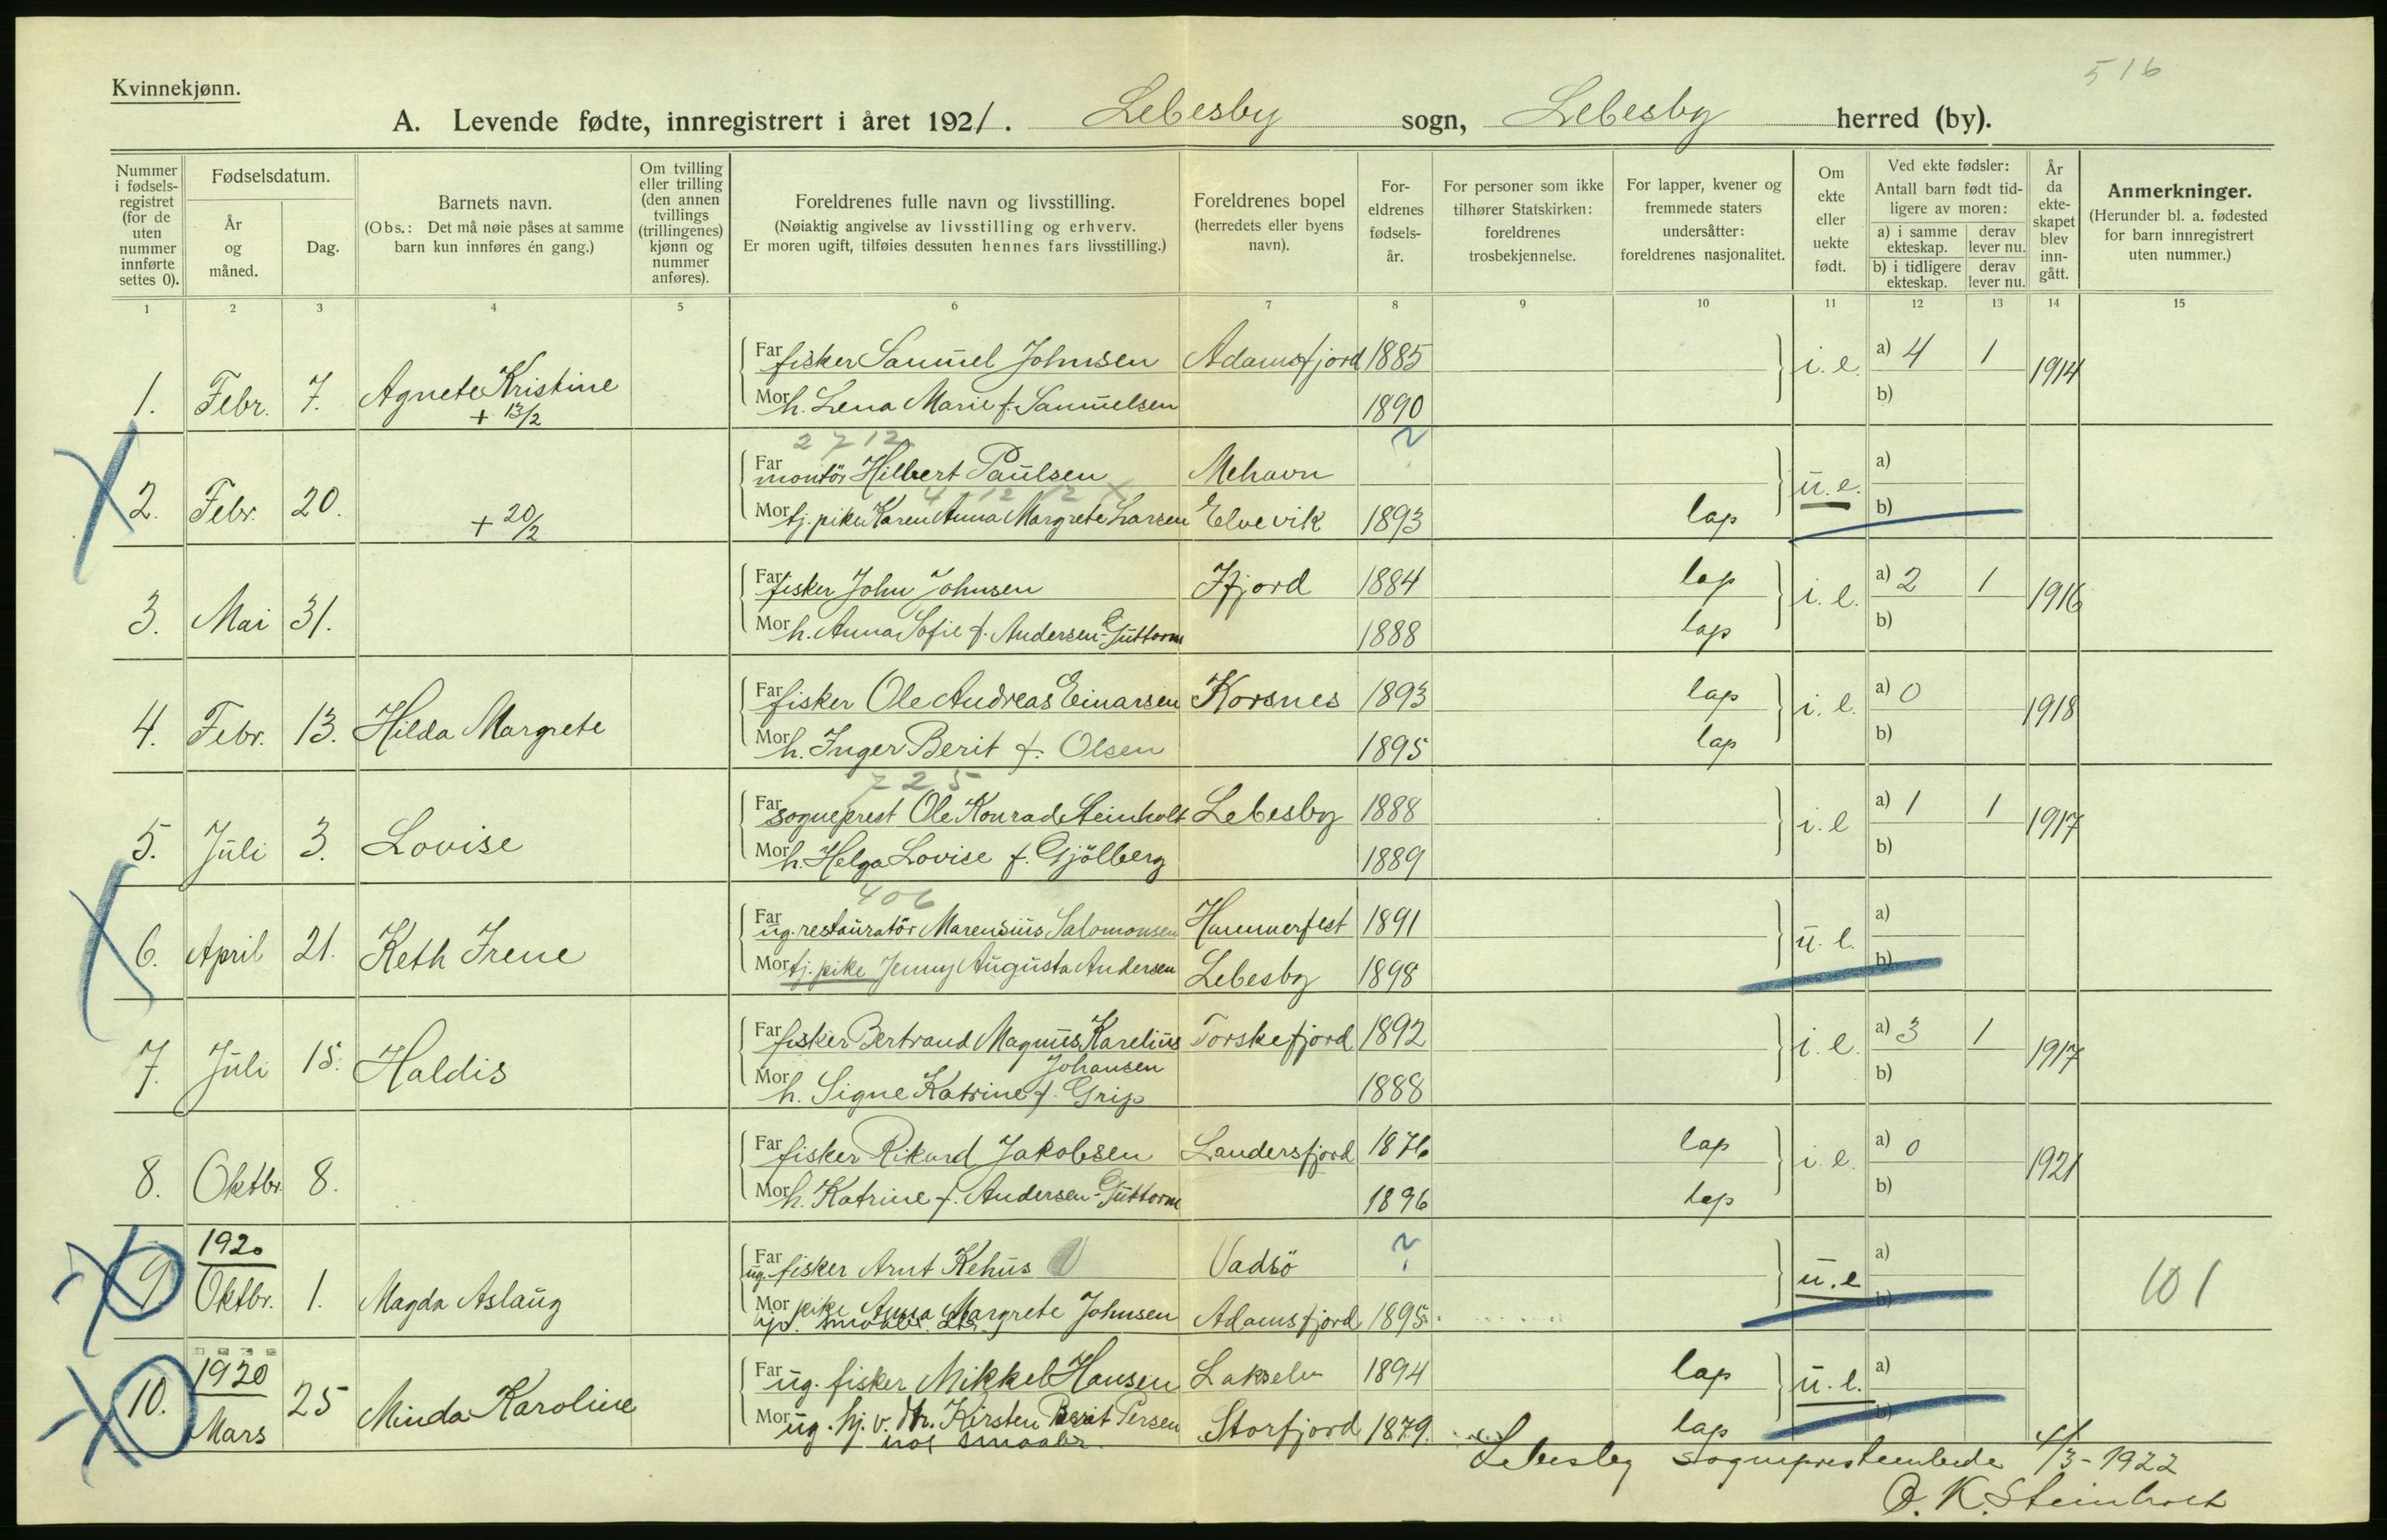 516
Kvinnekjønn.
A. Levende fødte, innregistrert i året 1921. Lebesby sogn, Lebesby herred (by).
Nummer i fødselsregistret (for de uten nummer innførte settes 0).
Fødselsdatum.
År og måned.
Dag.
Barnets navn.
(Obs.: Det må nøie påses at samme barn kun innføres én gang.)
Om tvilling eller trilling (den annen tvillings (trillingenes) kjønn og nummer anføres).
Foreldrenes fulle navn og livsstilling.
(Nøiaktig angivelse av livsstilling og erhverv.
Er moren ugift, tilføies dessuten hennes fars livsstilling.)
Foreldrenes bopel (herredets eller byens navn).
Foreldrenes fødselsår.
For personer som ikke tilhører Statskirken: foreldrenes trosbekjennelse.
For lapper, kvener og fremmede staters undersåtter: foreldrenes nasjonalitet.
Om ekte eller uekte født.
Ved ekte fødsler:
Antall barn født tidligere av moren:
a) i samme ekteskap. derav lever nu.
b) i tidligere ekteskap. derav lever nu.
År da ekteskapet blev inngått.
Anmerkninger.
(Herunder bl. a. fødested for barn innregistrert uten nummer.)
1 2 3 4 5 6 7 8 9 10 11 12 13 14 15
Far fisker Samuel Johnsen Adamsfjord 1885 i. e. a) 4 1 1914
1. Febr. 7. Agnete Kristine
+ 13/2
Mor h. Lena Marie f. Samuelsen 1890 b)
2 7 12
Far montör Hilbert Paulsen Mehavn ? u. e. a)
4 12 12 X
2. Febr. 20. + 20/2
Mor tj. pike Karen Anna Margrete Larsen Elvevik 1893 lap b)
Far fisker John Johnsen Ifjord 1884 lap i. e. a) 2 1 1916
3. Mai 31.
Mor h. Anna Sofie f. Andersen-Guttorm 1888 lap b)
Far fisker Ole Andreas Einarsen Korsnes 1893 lap i. e. a) 0 1918
4. Febr. 13. Hilda Margrete
Mor h. Inger Berit f. Olsen 1895 lap b)
7 2 5
Far sogneprest Ole Konrad Steinholt Lebesby 1888 i. e a) 1 1 1917
5. Juli 3. Lovise
Mor h. Helga Lovise f. Gjölberg 1889 b)
406
Far ug. restauratör Marensius Salomonsen Hammerfest 1891 u. e. a)
6. April 21. Keth Irene
Mor tj. pike Jenny Augusta Andersen Lebesby 1898 b)
Far fisker Bertrand Magnus Karelius Johansen Torskefjord 1892 i. e. a) 3 1 1917
7. Juli 15. Haldis
Mor h. Signe Katrine f. Grip 1888 b)
Far fisker Rikard Jakobsen Landersfjord 1876 lap i. e. a) 0 1921
8. Oktbr. 8.
Mor h. Katrine f. Andersen-Guttorm 1896 lap b)
1920
Far ug. fisker Arnt Kehus Vadsö ? u. e a)
9. Oktbr. 1. Magda Aslaug 101
Mor pike Anna Margrete Johnsen Adamsfjord 1895 b)
1920
Far ug. fisker Mikkel Hansen Lakselv 1894 lap u. e. a)
10. Mars 25 Minda Karoline
Mor ug. hj. v. dtr. Kirsten Berit Persen Storfjord 1879. lap b)
hos smaabr.
Lebesby sogneprestembede 4/3-1922
O. K. Steinholt